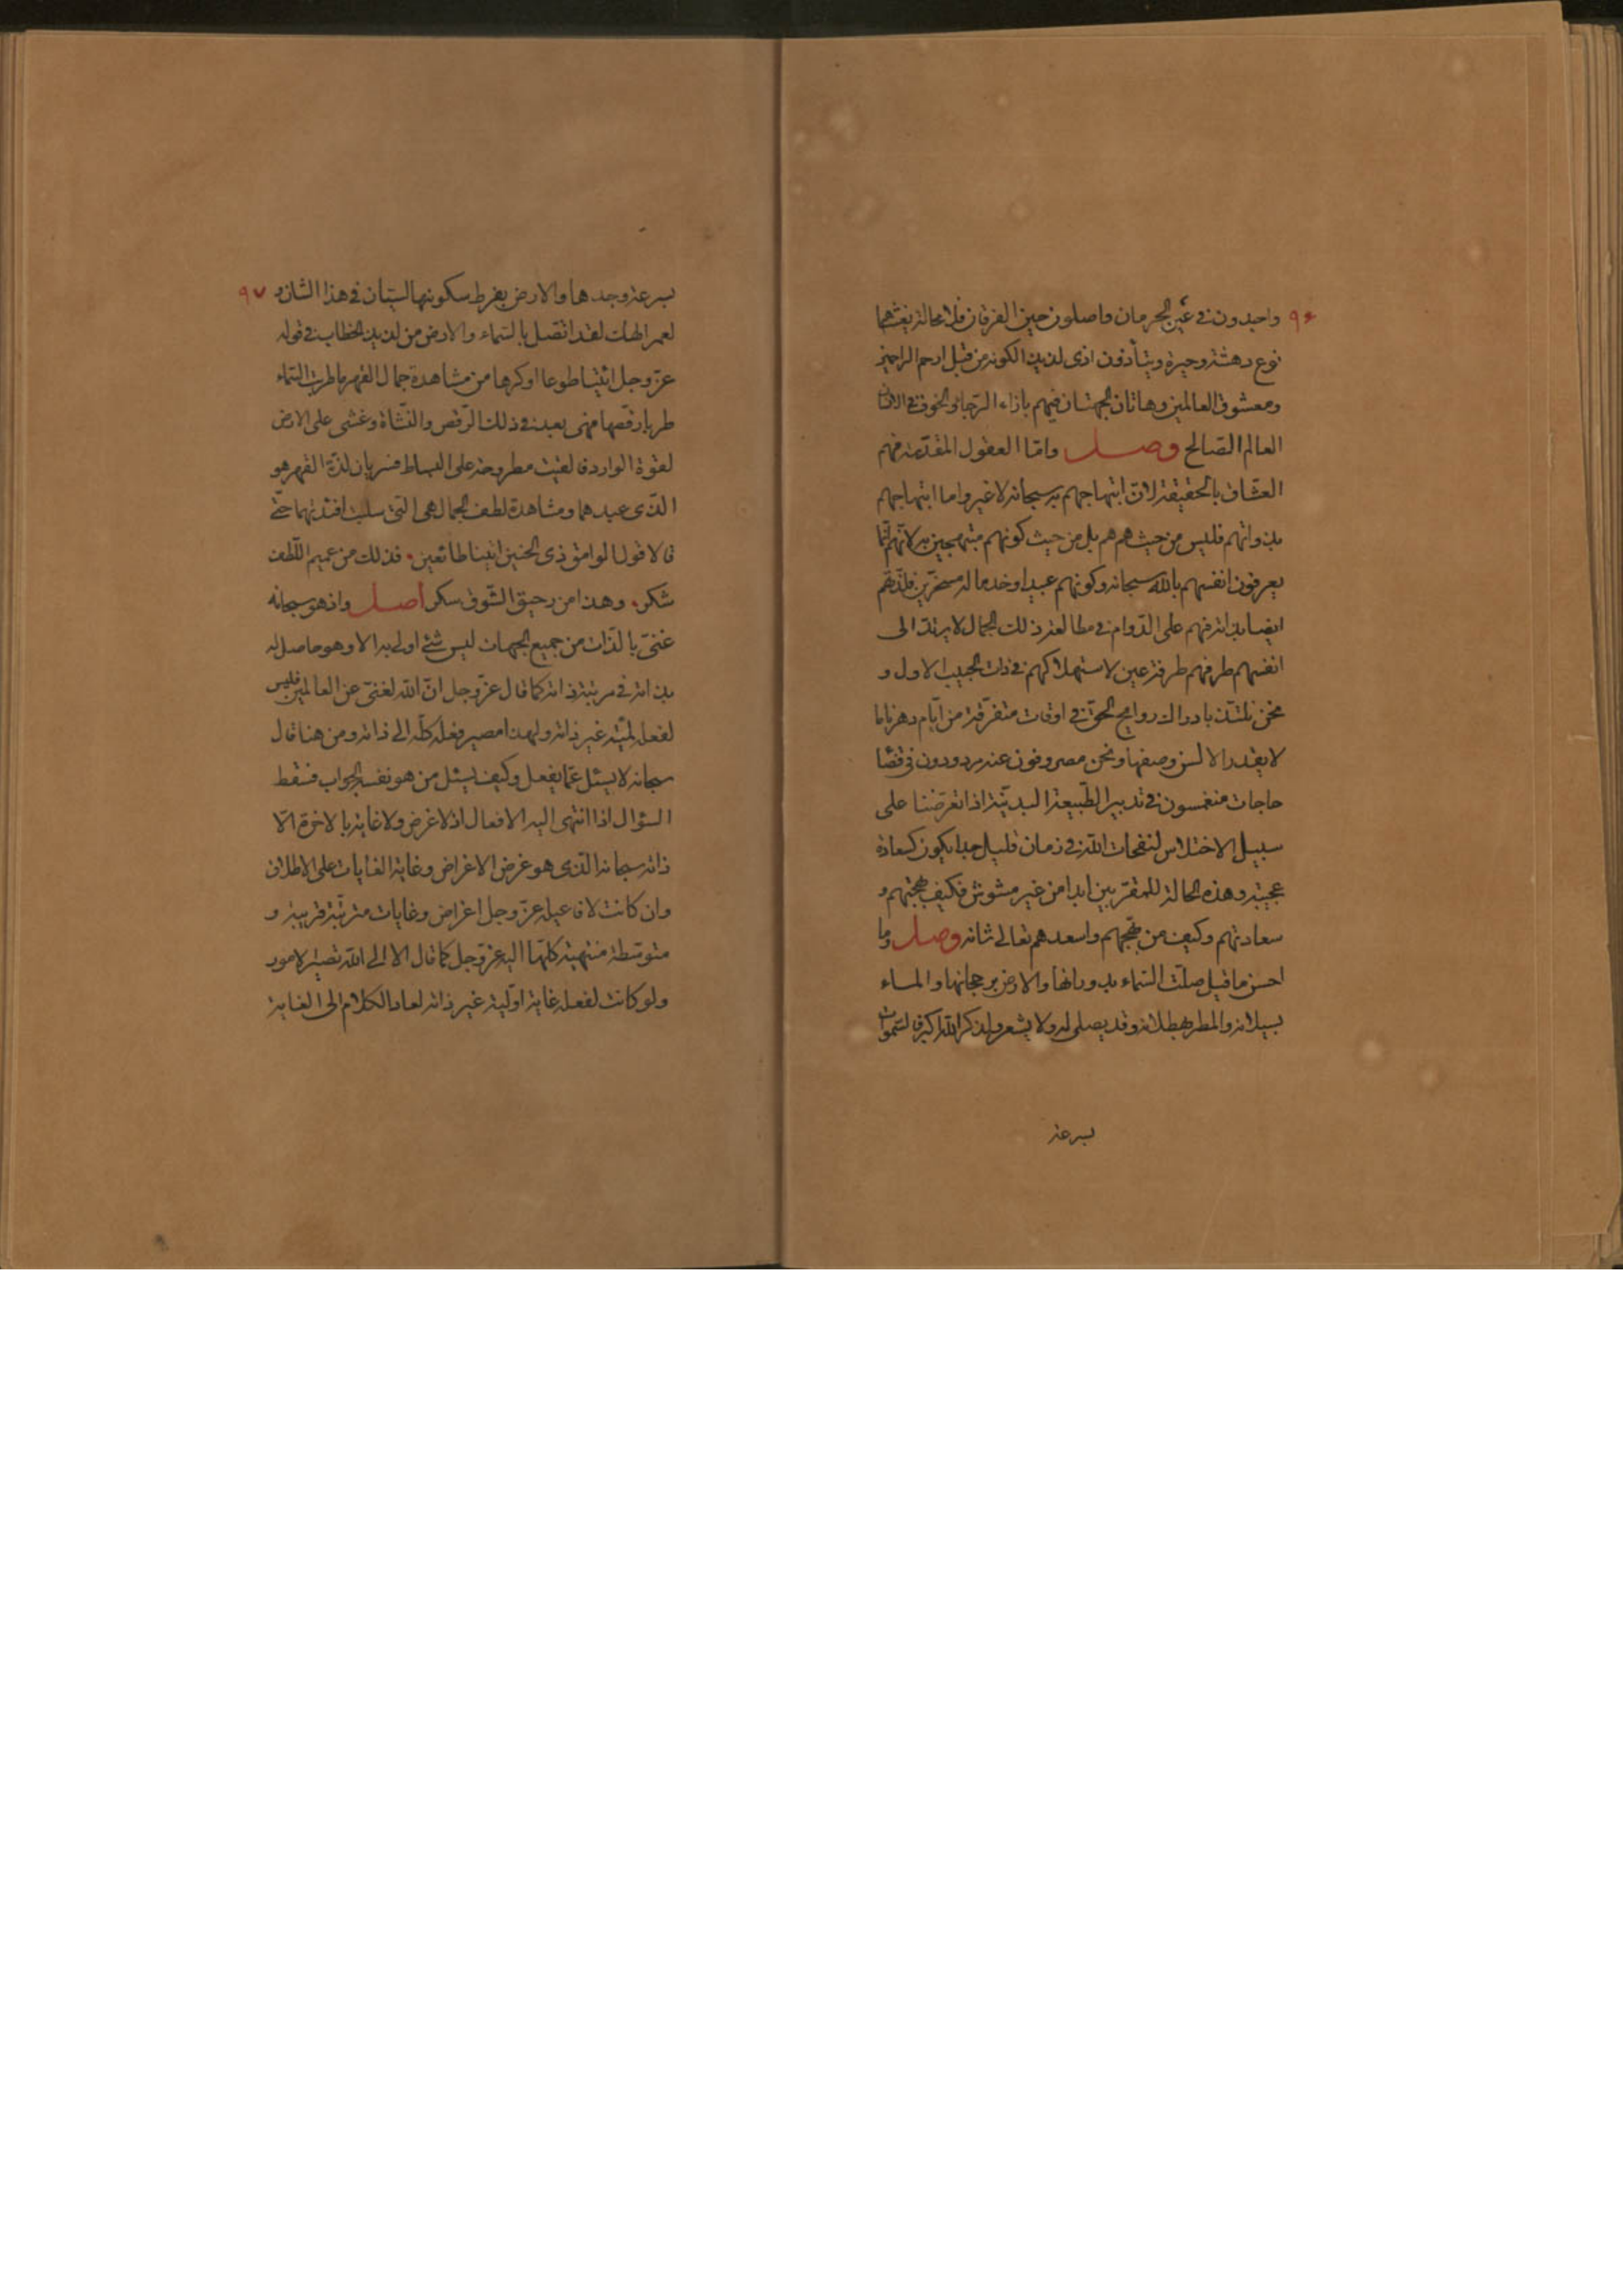 ٩٦
واجدون في عين الحرمان واصلون حين الفرقان فلا محالة يغشيهما
نوع دهشة وحيرة ويتأذون اذى لذيذا لكونه من قبل ارحم الراحمين
ومعشوق العالمين وهاتان الجهتان فيهم بازاء الرجاء والخوف في الانسان
العالم الصالح وصل واما العقول المقدسة فهم
العشاق بالحقيقة لان ابتهاجهم به سبحانه لا غير واما ابتهاجهم
بذواتهم فليس من حيث هم هم بل من حيث كونهم مبتهجين به لانهم انما
يعرفون انفسهم بالله سبحانه وكونهم عبيدا وخدما له مسخرين فلذتهم
ايضا بذاته فهم على الدوام في مطالعة ذلك الجمال لا يرتد الى
انفسهم طرفهم طرفة عين لاستهلاكهم في ذات الحبيب الاول و
نحن نلتذ بادراك روايح الحق في اوقات متفرقة من ايام دهرنا ما
لا يقدر الالسن وصفها ونحن مصروفون عنه مردودون في قضا
حاجات منغمسون في تدبير الطبيعة البدنية اذا تعرضنا على
سبيل الاختلاس لنفحات الله في زمان قليل جدا يكون كسعادة
عجيبة وهذه الحالة للمقربين ابدا من غير مشوش فكيف بهجتهم و
سعادتهم وكيف من بهجهم واسعدهم تعالى شانه وصل وما
احسن ما قيل صلت السماء بدورانها والارض برجحانها والماء
بسيلانه والمطر بهطلانه وقد يصلى له ولا يشعر ولذكر الله اكبر فالسموات
بسرعة
٩٧
بسرعة وجدها والارض بفرط سكونها لسيان في هذا الشان و
لعمر الهك لقد اتصل بالسماء والارض من لذيذ الخطاب في قوله
عز وجل ائتيا طوعا او كرها من مشاهدة جمال القهر ما طربت السماء
طربا رقصها فهى بعد في ذلك الرقص والنشاة وغشى على الارض
لقوة الوارد فالقيت مطروحة على البساط فسريان لذة القهر هو
الذى عبدهما ومشاهدة لطف الجمال هى التى سلبت افئدتهما حتى
قالا قول الوامق ذى الحنين اتينا طائعين فذلك من عميم اللطف
شكر وهذا من رحيق الشوق سكر اصل واذ هو سبحانه
غنى بالذات من جميع الجهات ليس شئ اولى به الا وهو حاصل له
بذاته في مرتبة ذاته كما قال عز وجل ان الله لغنى عن العالمين فليس
لفعله لمية غير ذاته ولهذا مصير فعله كله الى ذاته ومن هنا قال
سبحانه لا يسئل عما يفعل وكيف يسئل من هو نفس الجواب فسقط
السؤال اذا انتهى اليه الافعال اذ لا غرض ولا غاية بالاخرة الا
ذاته سبحانه الذى هو غرض الاغراض وغاية الغايات على الاطلاق
وان كانت لافاعيله عز وجل اغراض وغايات مترتبة قريبة و
متوسطة منتهية كلها اليه عز وجل كما قال الا الى الله تصير الامور
ولو كانت لفعله غاية اولية غير ذاته لعاد الكلام الى الغاية